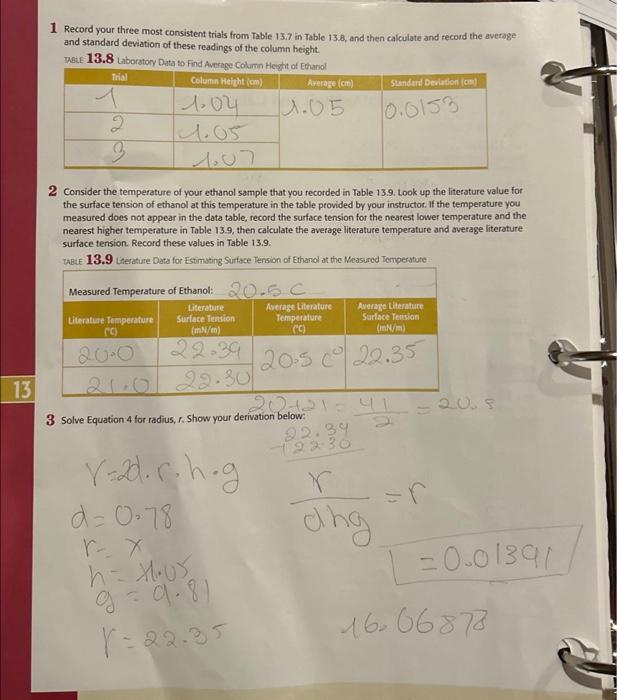 1 Record your three most consistent trials from Table 13.7 in Table 13.8, and then calculate and record the average
and standard deviation of these readings of the column height.
TABLE 13.8 Laboratory Data to Find Average Column Height of Ethanol
Trial Column Height (cm) Average (cm) Standard Deviation (cm)
1 1.04 1.05 0.0153
2 1.05
3 1.07
2 Consider the temperature of your ethanol sample that you recorded in Table 13.9. Look up the literature value for
the surface tension of ethanol at this temperature in the table provided by your instructor. If the temperature you
measured does not appear in the data table, record the surface tension for the nearest lower temperature and the
nearest higher temperature in Table 13.9, then calculate the average literature temperature and average literature
surface tension. Record these values in Table 13.9.
TABLE 13.9 Literature Data for Estimating Surface Tension of Ethanol at the Measured Temperature
Measured Temperature of Ethanol: 20.5 C
Literature Temperature (°C) Literature Surface Tension (mN/m) Average Literature Temperature (°C) Average Literature Surface Tension (mN/m)
20.0 22.39 20.5 C° 22.35
21.0 22.30
20+21 = 41/2 = 20.5
13
3 Solve Equation 4 for radius, r. Show your derivation below:
22.39
+22.30
γ=2d.r.h.g
γ/dhg = r
d= 0.78
r= x
= 0.01391
h= 1.05
g = 9.81
16.06878
γ = 22.35